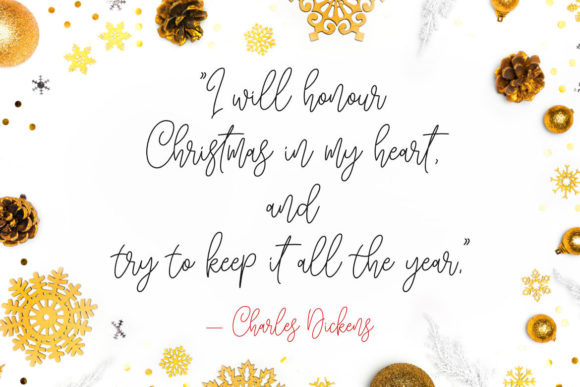 "I will honour
Christmas in my heart,
and
try to keep it all the year."
— Charles Dickens